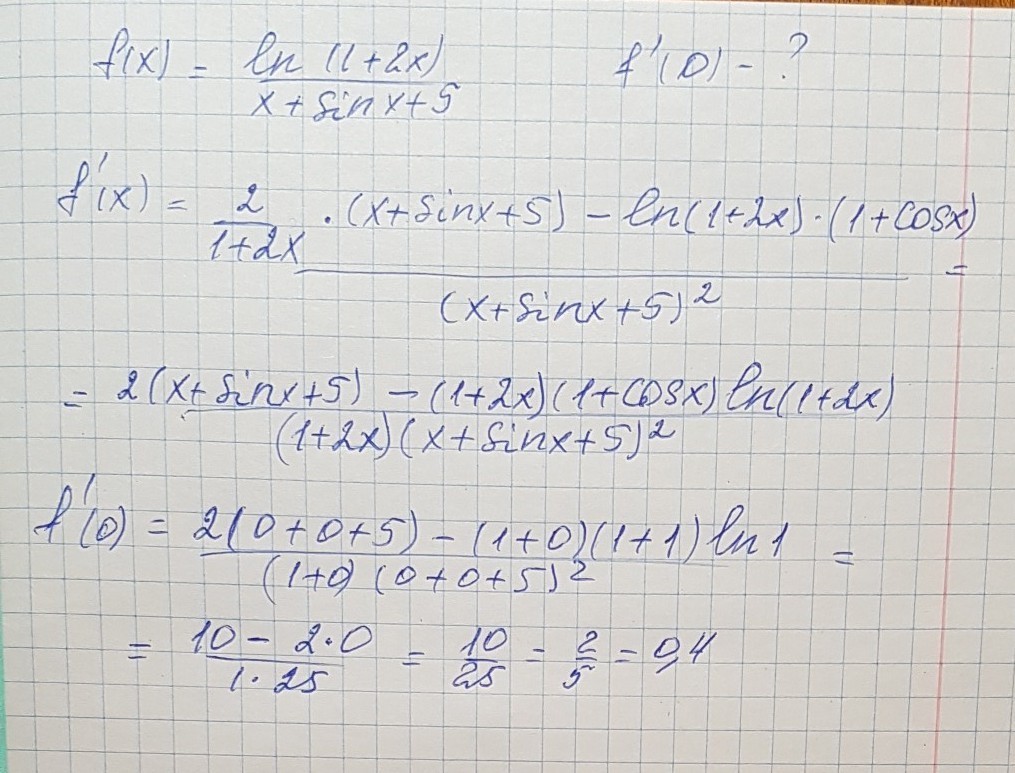 f(x) = ln (1+2x) / x + sin x + 5 f'(0) - ?
f'(x) = 2/(1+2x) · (x+sinx+5) - ln(1+2x)·(1+cosx) / (x+sinx+5)² =
= 2(x+sinx+5) - (1+2x)(1+cosx) ln(1+2x) / (1+2x)(x+sinx+5)²
f'(0) = 2(0+0+5) - (1+0)(1+1) ln 1 / (1+0)(0+0+5)² =
= 10 - 2·0 / 1·25 = 10/25 = 2/5 = 0,4